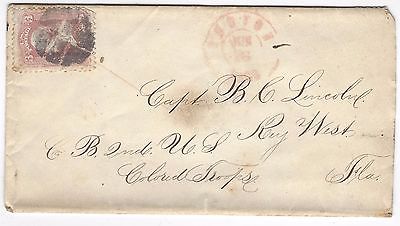 3 3
BOSTON
JUN
Capt. B. C. Lincoln.
Key West
C B 2nd. U S
Colored Troops Fla.